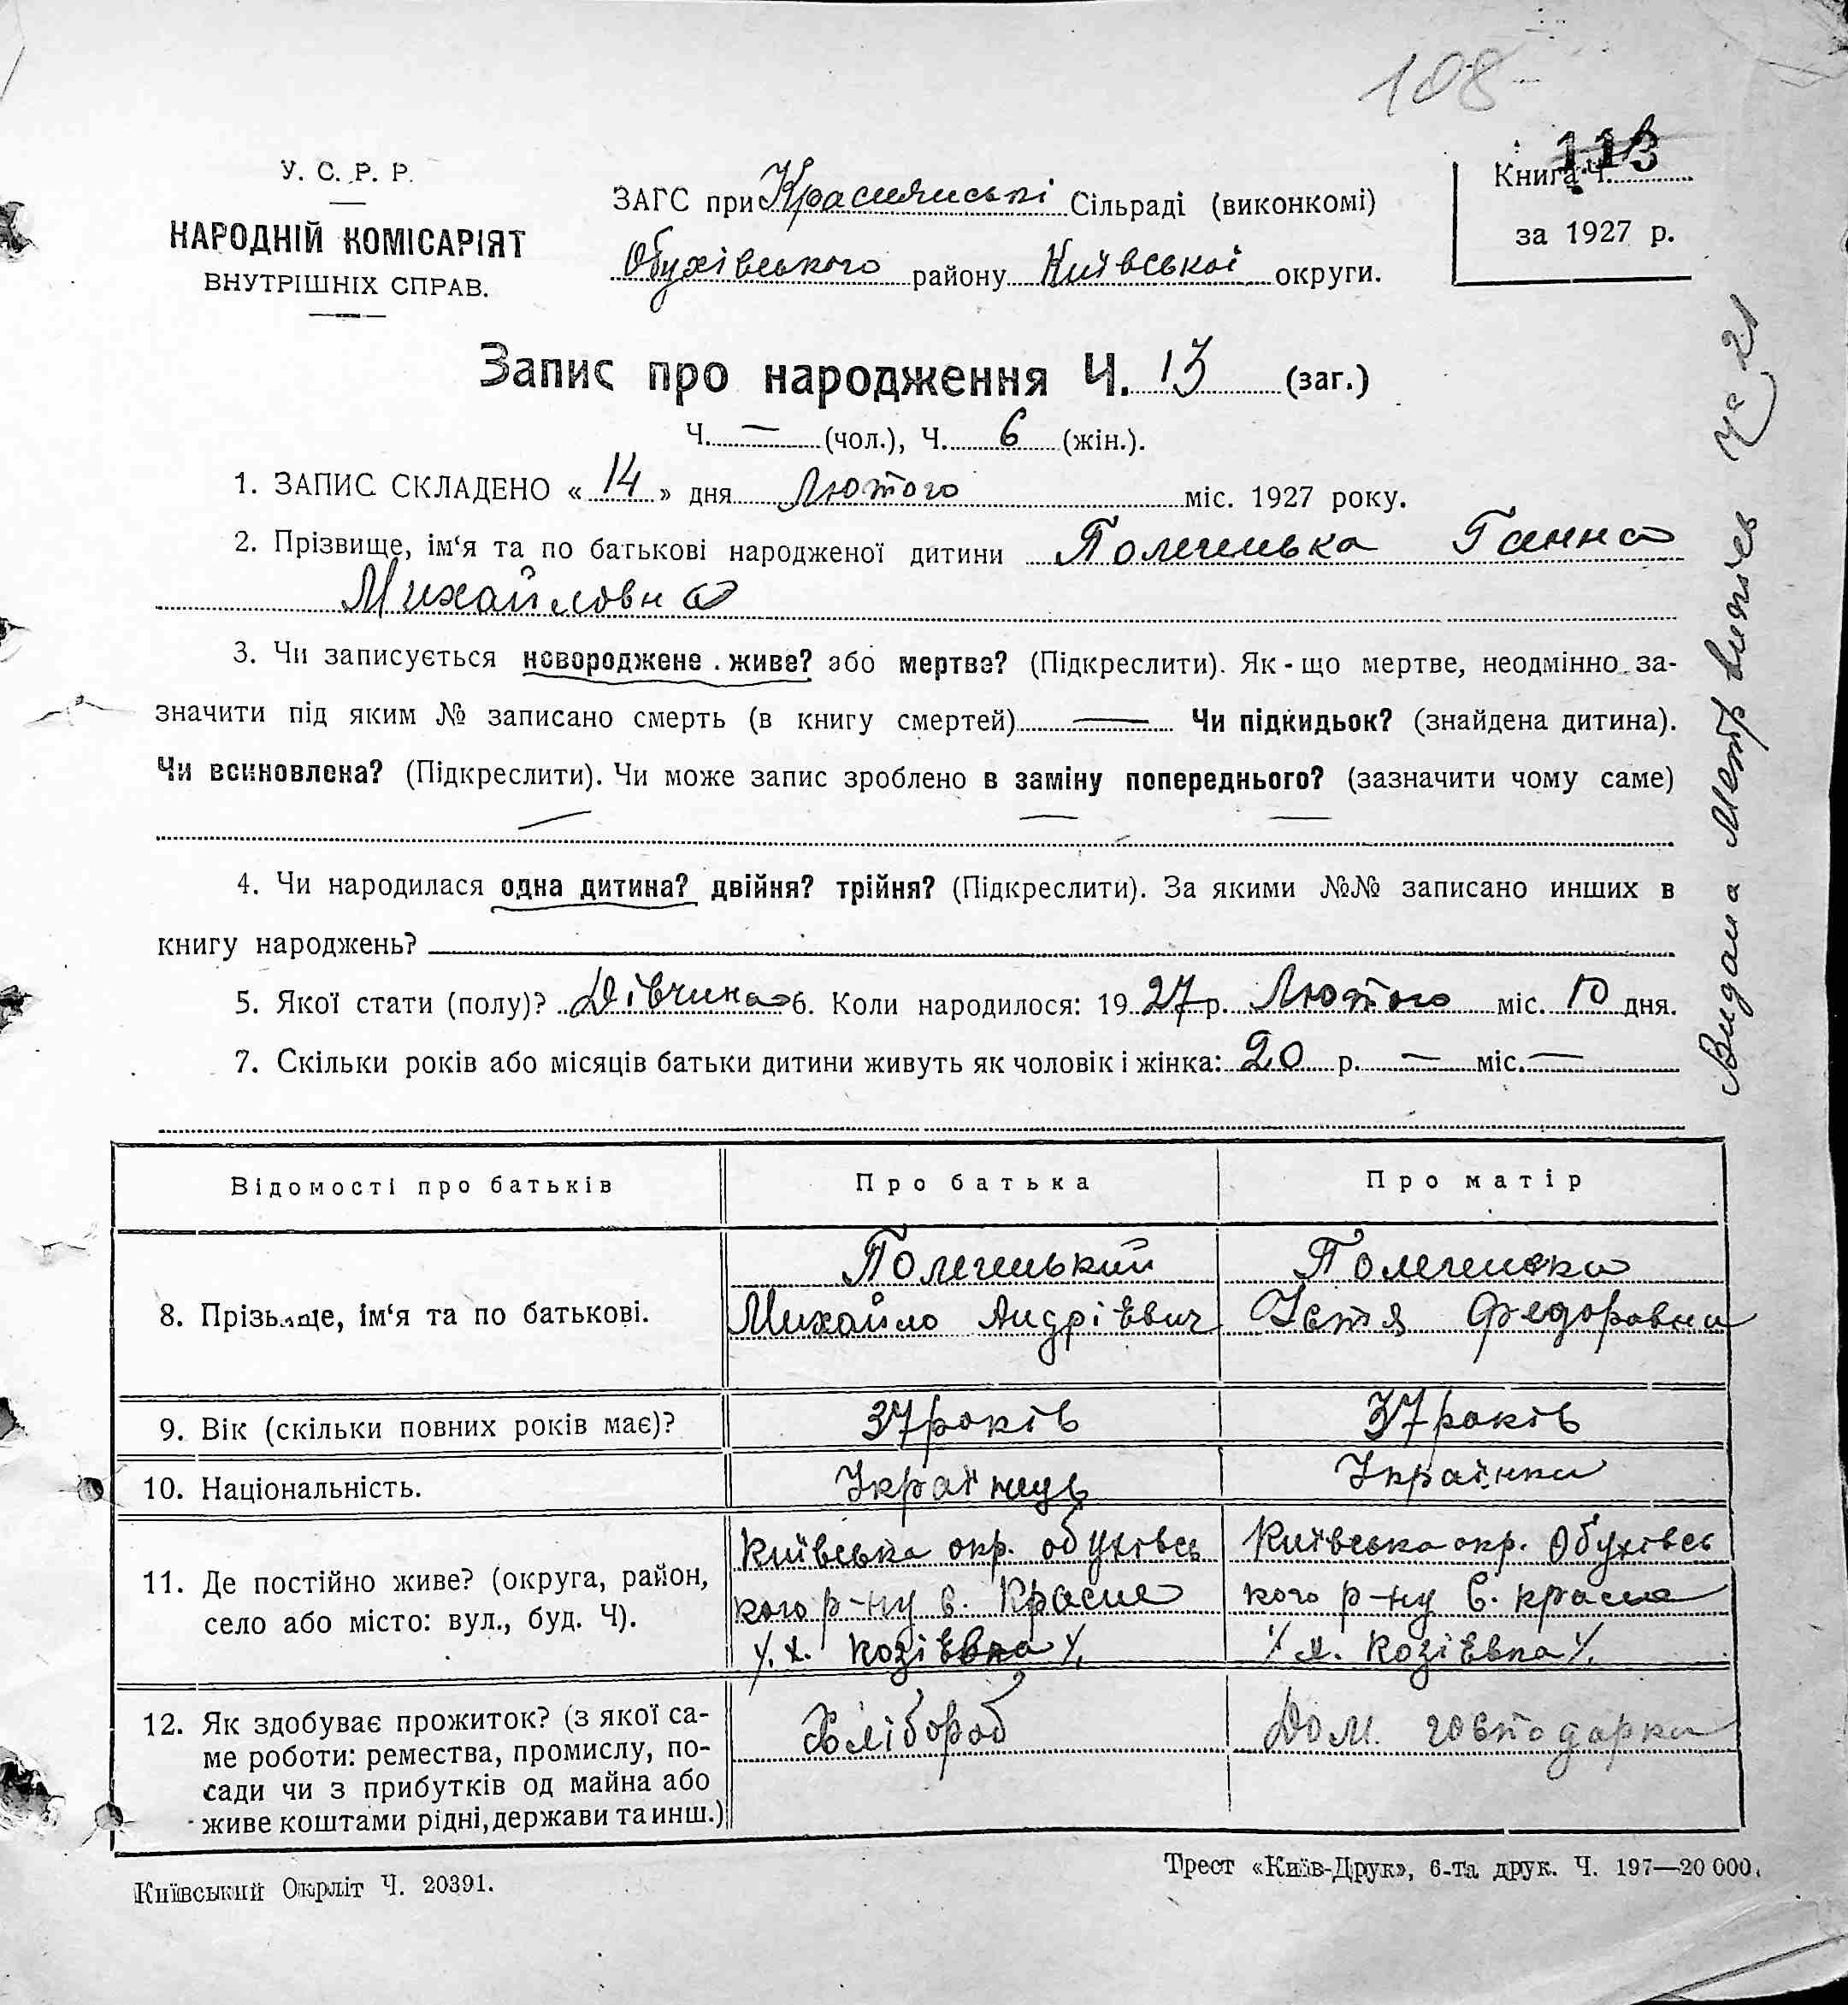 108
У. С. Р. Р.
НАРОДНІЙ КОМІСАРІЯТ
ВНУТРІШНІХ СПРАВ.
ЗАГС при Краснянські Сільраді (виконкомі)
Обухівського району Київської округи.
Книга Ч. 113
за 1927 р.
Запис про народження Ч. 13 (заг.)
Ч. — (чол.), Ч. 6 (жін.).
1. ЗАПИС СКЛАДЕНО « 14 » дня Лютого міс. 1927 року.
2. Прізвище, ім‘я та по батькові народженої дитини Ганна
Михайловна
3. Чи записується новороджене живе? або мертве? (Підкреслити). Як-що мертве, неодмінно за-
значити під яким № записано смерть (в книгу смертей) — Чи підкидьок? (знайдена дитина).
Чи всиновлена? (Підкреслити). Чи може запис зроблено в заміну попереднього? (зазначити чому саме)
— — —
4. Чи народилася одна дитина? двійня? трійня? (Підкреслити). За якими №№ записано инших в
книгу народжень?
5. Якої стати (полу)? Дівчина 6. Коли народилося: 1927 р. Лютого міс. 10 дня.
7. Скільки років або місяців батьки дитини живуть як чоловік і жінка: 20 р. — міс. —
Видана Метр
Відомості про батьків Про батька Про матір
8. Прізвище, ім‘я та по батькові.
Михайло Андрієвич Устя Федоровна
9. Вік (скільки повних років має)? 37 років 37 років
10. Національність. Українець Українка
11. Де постійно живе? (округа, район,
село або місто: вул., буд. Ч).
Київська окр. Обухівсь
кого р-ну с. Красне
х. Козіевка
Київська окр. Обухівсь
кого р-ну с. Красне
х. Козіевка
12. Як здобуває прожиток? (з якої са-
ме роботи: ремества, промислу, по-
сади чи з прибутків од майна або
живе коштами рідні, держави та инш.)
Хлібороб Дом. господарка
Київський Окрліт Ч. 20391.
Трест «Київ-Друк», 6-та друк. Ч. 197—20 000.